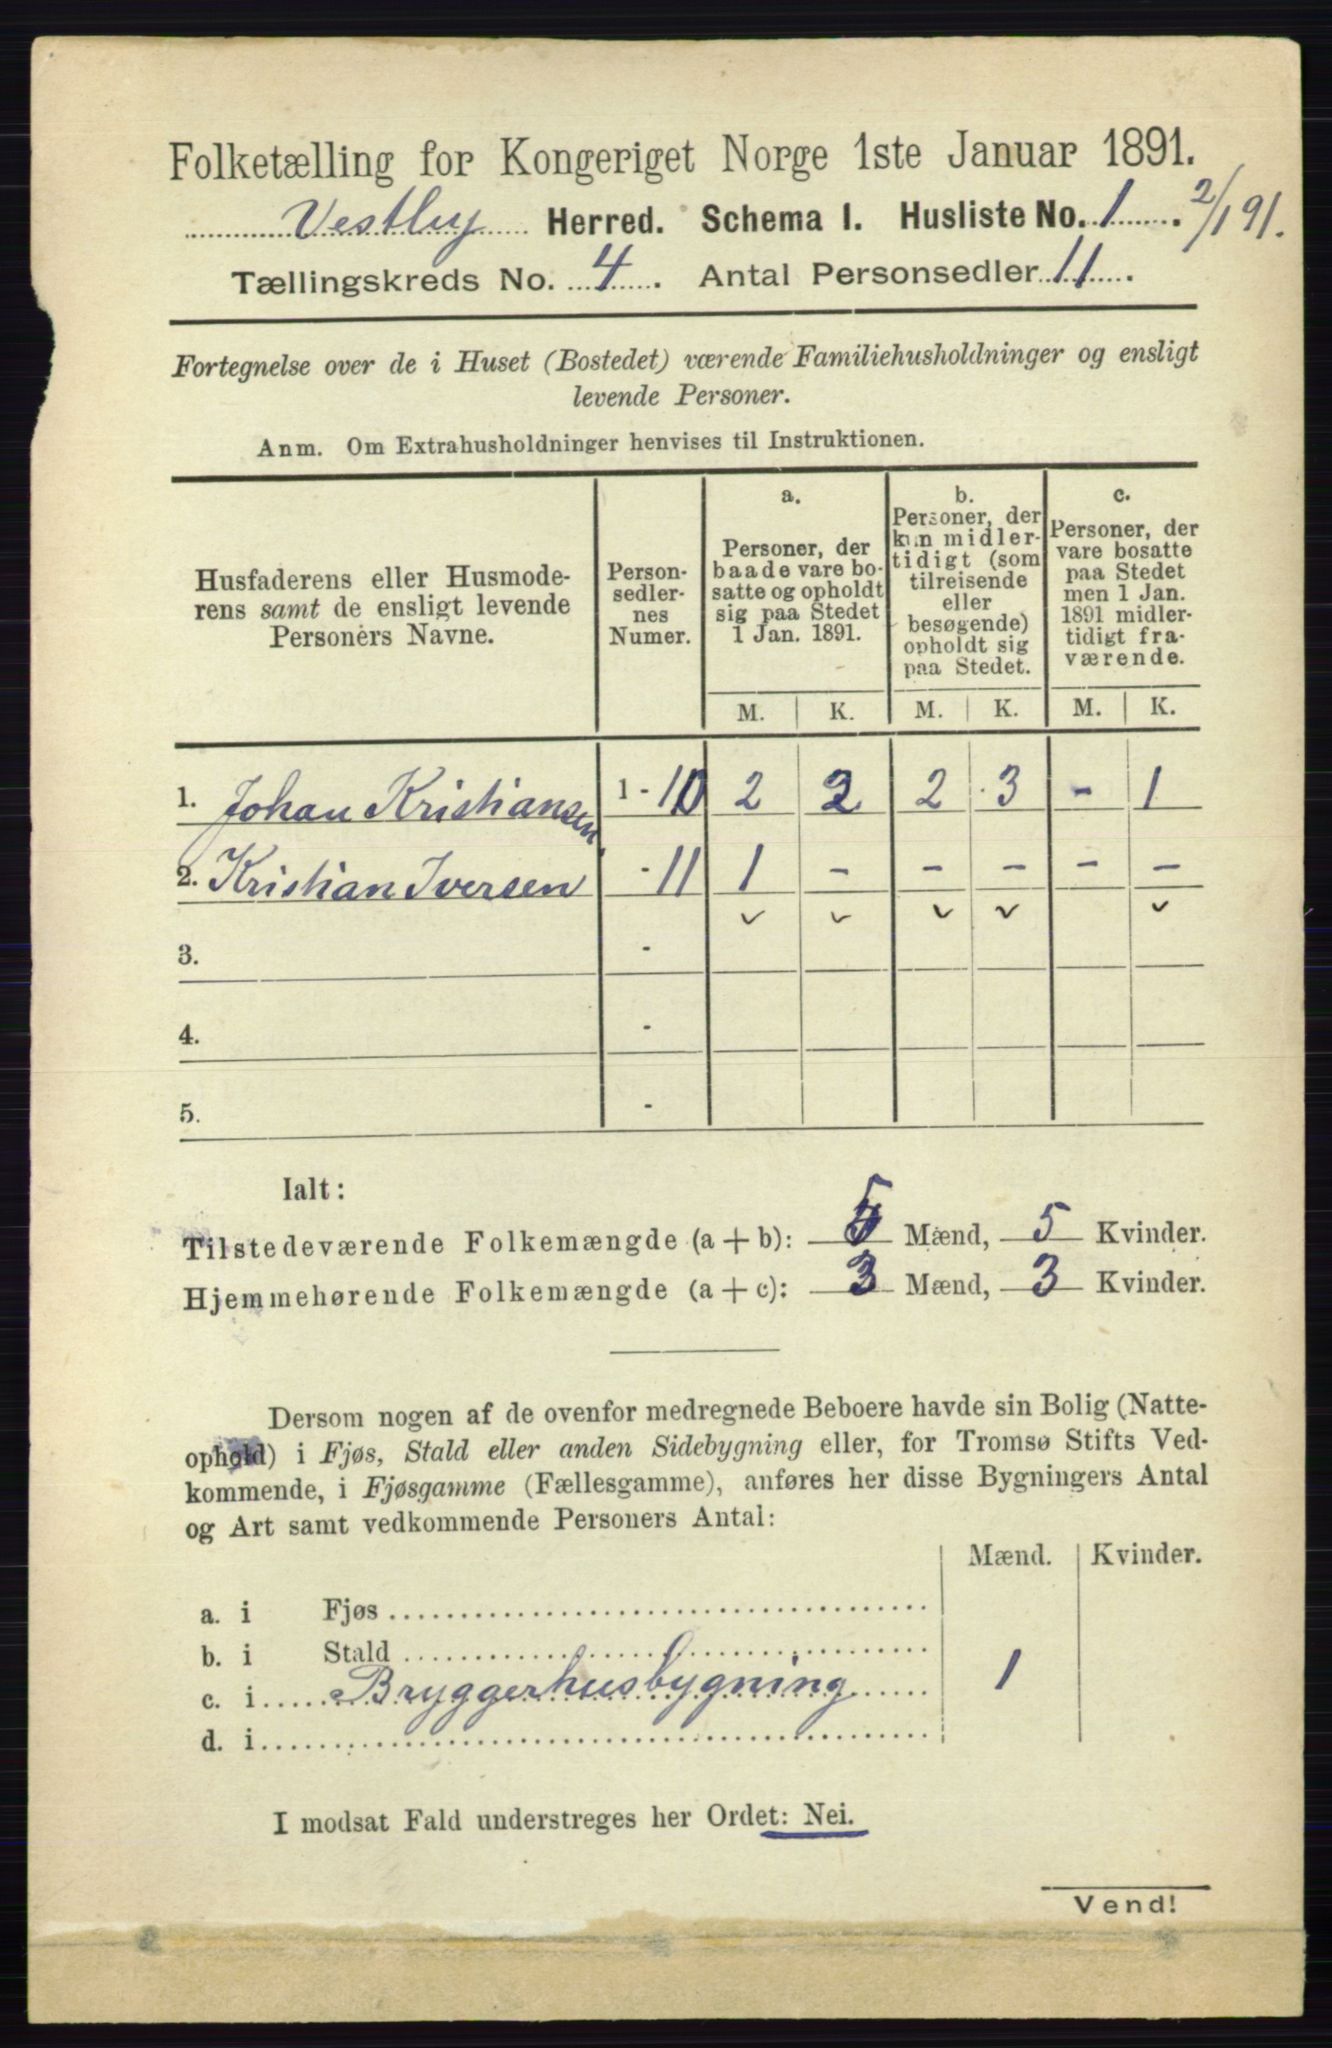 Folketælling for Kongeriget Norge 1ste Januar 1891.
Vestby Herred. Schema I. Husliste No. 1. 2/1 91.
Tællingskreds No. 4. Antal Personsedler 11.
Fortegnelse over de i Huset (Bostedet) værende Familiehusholdninger og ensligt
levende Personer.
Anm. Om Extrahusholdninger henvises til Instruktionen.
Husfaderens eller Husmode-
rens samt de ensligt levende
Personers Navne.
Person-
sedler-
nes
Numer.
a.
Personer, der
baade vare bo-
satte og opholdt
sig paa Stedet
1 Jan. 1891.
b.
Personer, der
kun midler-
tidigt (som
tilreisende
eller
besøgende)
opholdt sig
paa Stedet.
c.
Personer, der
vare bosatte
paa Stedet
men 1 Jan.
1891 midler-
tidigt fra-
værende.
M. K. M. K. M. K.
1. Johan Kristiansen 1 - 10 2 2 2 3 - 1
2. Kristian Iversen - 11 1 - - - - -
3. -
4. -
5. -
Ialt:
Tilstedeværende Folkemængde (a + b): 5 Mænd, 5 Kvinder.
Hjemmehørende Folkemængde (a + c): 3 Mænd, 3 Kvinder.
Dersom nogen af de ovenfor medregnede Beboere havde sin Bolig (Natte-
ophold) i Fjøs, Stald eller anden Sidebygning eller, for Tromsø Stifts Ved-
kommende, i Fjøsgamme (Fællesgamme), anføres her disse Bygningers Antal
og Art samt vedkommende Personers Antal:
Mænd. Kvinder.
a. i Fjøs
b. i Stald
c. i Bryggerhusbygning 1
d. i
I modsat Fald understreges her Ordet: Nei.
Vend!